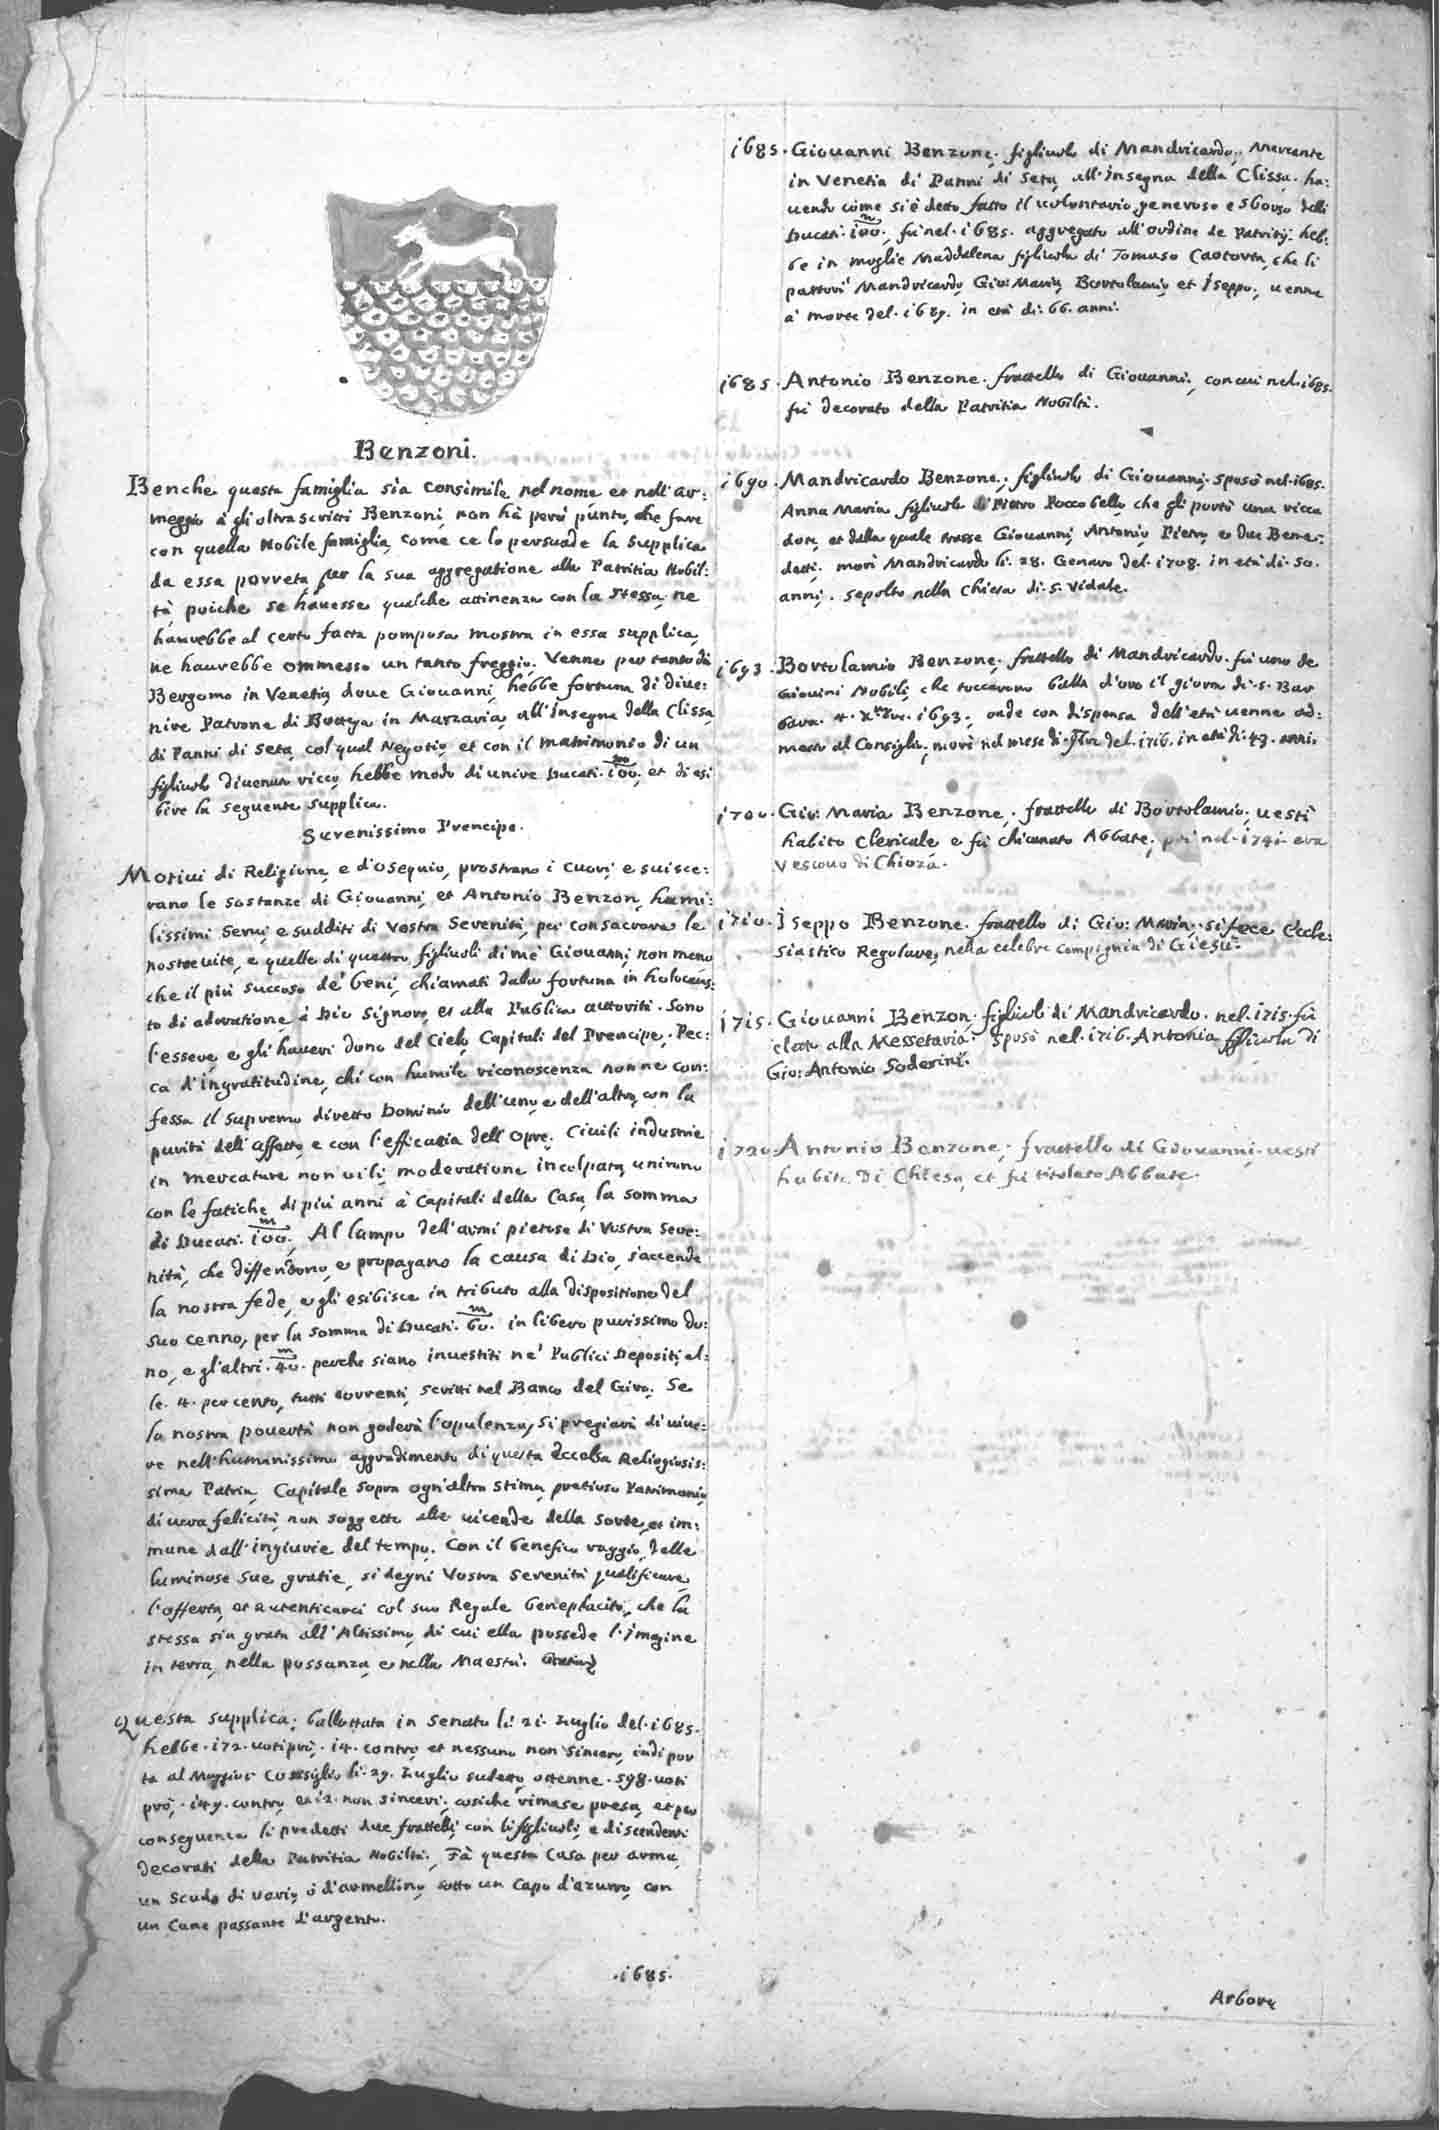 Benzoni.
Benche questa famiglia sia consimile nel nome et nell'ar:
meggio à gli oltrascritti Benzoni, non hà però punto, che fare
con quella Nobile famiglia, come ce lo persuade la supplica
da essa porreta per la sua aggregatione alla Patritia Nobil:
tà, poiche se hauesse qualche attinenza con la stessa, ne
haurebbe al certo fatta pomposa mostra in essa supplica,
ne haurebbe ommesso un tanto freggio. Venne per tanto di
Bergomo in Venetia, doue Giouanni, hebbe fortuna di diue:
nire Patrone di Bottega in Marzaria, all'insegna della Clissa,
di Panni di seta, col qual Negotio, et con il matrimonio di un
figliuolo diuenuto ricco, hebbe modo di unire Ducati. i00. m et di esi
bire la seguente supplica.
Serenissimo Prencipe.
Motiui di Religione, e d'osequio, prostrano i cuori, e suisce:
rano le sostanze di Giouanni, et Antonio Benzon, humi:
lissimi serui, e sudditi di Vostra Serenità, per consacrare le
nostre uite, e quelle di quattro figliuoli di mè Giouanni, non meno
che il più succoso de' beni, chiamati dalla fortuna in holocaus:
to di adoratione à Dio Signore, et alla Publica auttorità. Sono
l'essere, e gli haueri dono del Cielo, Capitali del Prencipe. Pec:
ca d'ingratitudine, chi con humile riconoscenza non ne con:
fessa il supremo diretto Dominio dell'uno, e dell'altro, con la
purità dell'affetto, e con l'efficacia dell'opre. Ciuili industrie
in mercature non uili, moderatione incolpata, unirono
con le fatiche di più anni à Capitali della Casa, la somma
di Ducati. i00. m Al lampo dell'armi pietose di Vostra Sere:
nità, che diffendono, e propagano la causa di Dio, s'accende
la nostra fede, e gli esibisce in tributo alla dispositione del
suo cenno, per la somma di Ducati. 60. m in libero purissimo do:
no, e gl'altri. 40. m perche siano inuestiti ne' Publici Depositi, al:
le. 4. per cento, tutti correnti, scritti nel Banco del Giro. Se
la nostra pouertà non goderà l'opulenza, si pregiarà di uiue:
re nell'humanissimo aggradimento di questa Eccelsa Religiosis:
sima Patria, Capitale sopra ogn'altro stima, pretioso Patrimonio
di uera felicità, non soggetto alle uicende della sorte, et im:
mune dall'ingiurie del tempo. Con il benefico raggio delle
luminose sue gratie, si degni Vostra Serenità qualificare
l'offerta, et autenticarci col suo Regale beneplacito, che la
stessa sia grata all'Altissimo, di cui ella possede l'imagine
in terra, nella possanza, e nella Maestà. Gratie
Questa supplica, ballottata in Senato li. 2i. Luglio del. i685.
hebbe. i72. uoti prò, . i4. contro, et nessuno non sincero, indi por
ta al Maggior Consiglio li. 29. Luglio sudetto, ottenne. 598. uoti
prò, . i49. contro, et i2. non sinceri, cosiche rimase presa, et per
conseguenza li predetti due frattelli, con li figliuoli, e discendenti
decorati della Patritia Nobiltà. Fà questa Casa per arma,
un scudo di uario, ò d'armellino, sotto un Capo d'azurro, con
un Cane passante d'argento.
.i685.
i685. Giouanni Benzone, figliuolo di Mandricardo, Mercante
in Venetia di Panni di seta, all'insegna della Clissa. ha:
uendo come si è detto fatto il uolontario, generoso esborso delli
Ducati. i00. m, fù nel. i685. aggregato all'ordine de Patritij. heb:
be in moglie Maddalena figliuola di Tomaso Castorta, che li
partorì Mandricardo, Gio: Maria, Bortolamio, et Iseppo, uenne
à morte del. i689. in età di. 66. anni.
i685. Antonio Benzone. frattello di Giouanni, con cui nel. i685.
fù decorato della Patritia Nobiltà.
i690. Mandricardo Benzone, figliuolo di Giouanni, sposò nel. i685.
Anna Maria figliuola di Pietro Roccobello, che gli portò una ricca
dote, et dalla quale trasse Giouanni, Antonio, Pietro, e due Bene:
detti. morì Mandricardo li. 28. Genaro del. i708. in età di. 50.
anni. sepolto nella Chiesa di. S. Vidale.
i693. Bortolamio Benzone, frattello di Mandricardo, fù uno de
Giouini Nobili, che toccarono balla d'oro il giorno di. S. Bar
bara. 4. Xmbre. i693., onde con dispensa dell'età uenne ad:
messo al Consiglio, morì nel mese di. 7bre del. i7i6. in età di. 43. anni.
i700. Gio: Maria Benzone, frattello di Bortolamio, uestì
habito Clericale e fù chiamato Abbate, poi nel. i74i. era
Vescouo di Chioza.
i7i0. Iseppo Benzone. frattello di Gio: Maria. si fece Eccle:
siastico Regolare, nella celebre Compagnia di Giesù.
i7i5. Giouanni Benzon, figliuolo di Mandricardo. nel. i7i5. fù
eletto alla Messetaria. Sposò nel. i7i6. Antonia figliuola di
Gio: Antonio Soderini.
i720. Antonio Benzone, frattello di Giouanni, uestì
habito di Chiesa, et fù titolato Abbate.
Arbore